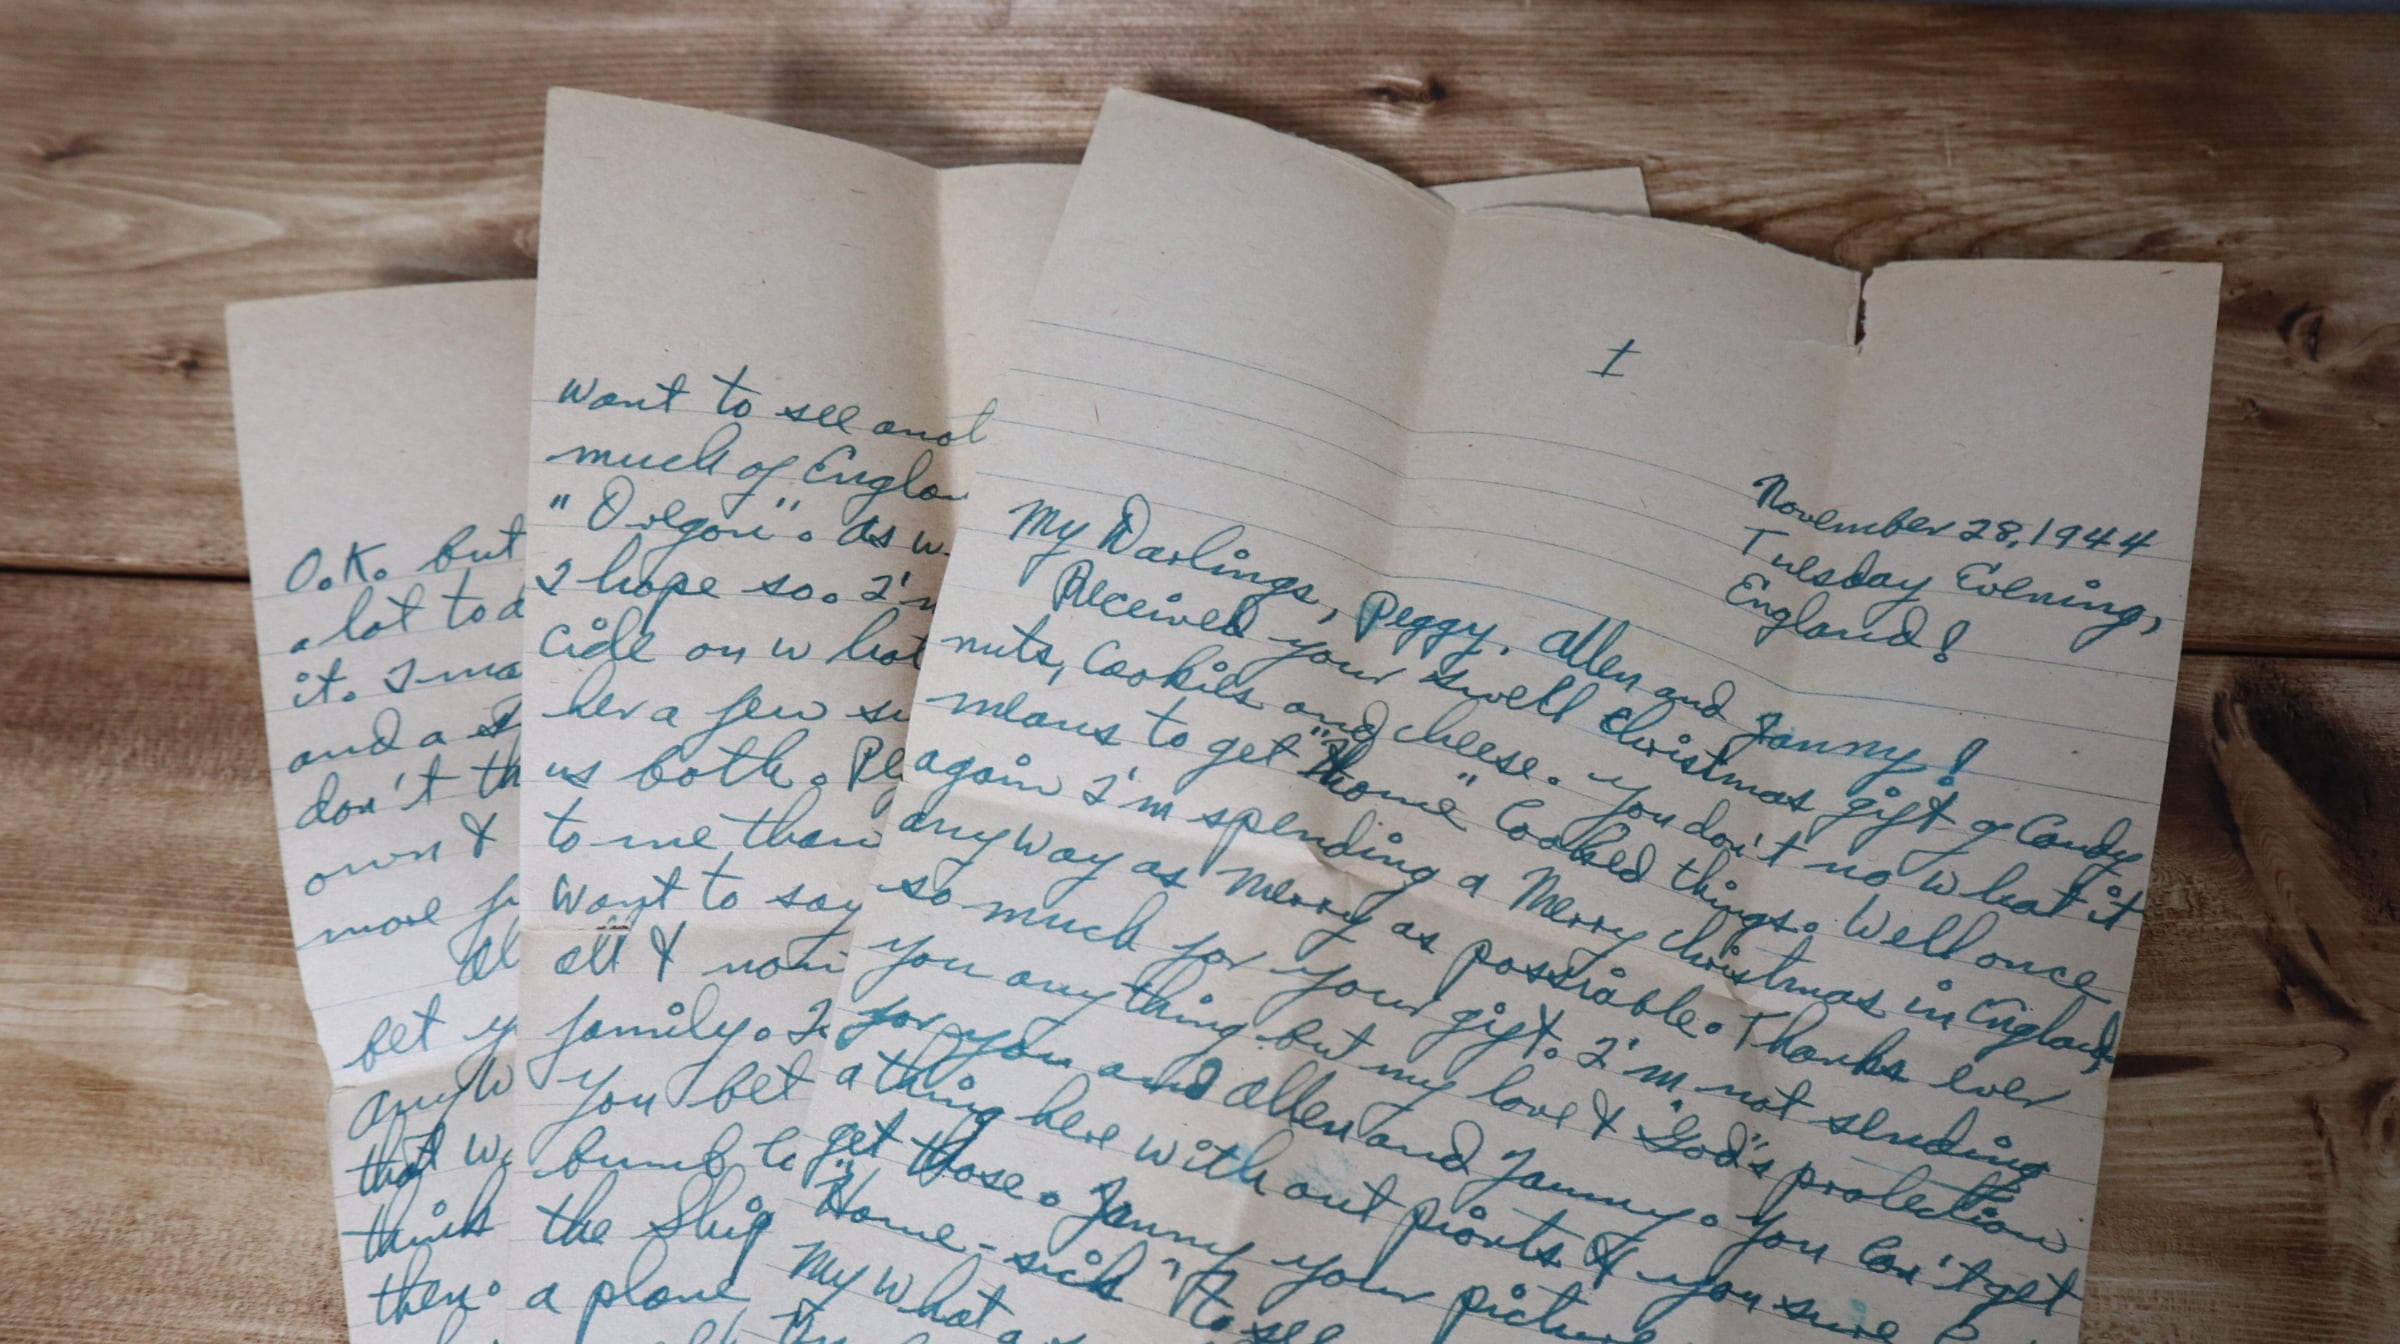 I
November 28, 1944
Tuesday Evening,
England!
My Darlings, Peggy, Allen and Janny!
Received your swell Christmas gift of Candy
nuts, Cookies and cheese. You don't no what it
means to get "home" Cooked things. Well once
again I'm spending a Merry Christmas in England,
anyway as merry as possiable. Thanks ever
so much for your gift. I'm not sending
you anything but my love & "God's protection
for you and Allen and Janny. You Can't get
a thing here with out pionts & you sure
get those. Janny your picture
"Home-sick" to see
My what a
want to see
much of
"Oregon". As
I hope so. I'm
cide on what
her a few
us both.
to me than
Want to say
all &
family.
You bet
bumb
the Ship
a plane
O.K. but
a lot to
it. I
and a
don't
own &
more
bet
that
think
then.